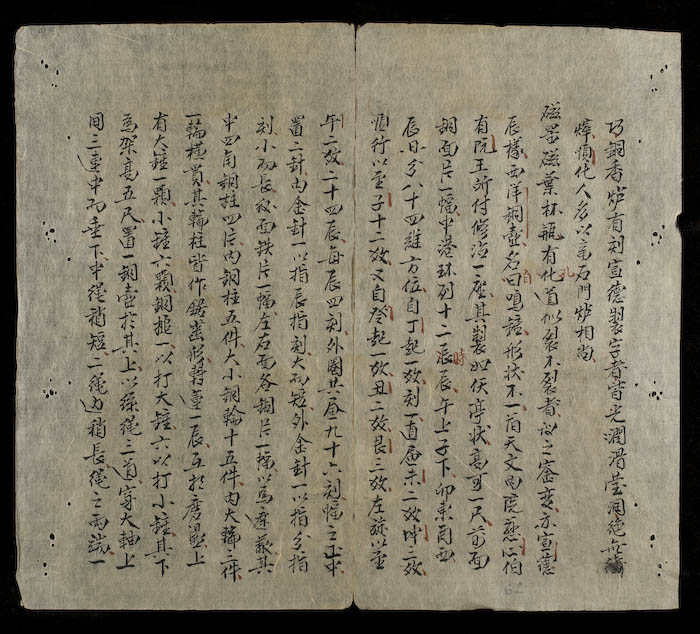 巧銅香炉有刻宣德製字者皆光潤滑瑩洞絕無
慎化人多以高石門炉相尚
磁器磁葉杯瓶有化首孔似裂不裂者謂之窑変亦宣德
辰樣西洋銅壺名曰鳴鐘形状不一前天文內院慈心伯
有阮王所付修治一座其製如伏亭状高可一尺前面
銅面片一幅中港環列十二辰時辰午上子下卯東酉西
辰毋分八十四維方位自丁起一效刻一直届未二效坤三效
順行以至子十二效又自癸起一效丑二效艮三效左旋以至
午一效二十四辰每辰四刻外圈共九十六刻幅之正中
置二針內金針一以指辰指刻大而短外金針一以指分指
刻小而長後面鉄片一幅左右面各銅片一幅以為遮蔽其
中四角銅柱四片內銅柱五件大小銅輪十五件內大輪三件
一輪橫貫其輪柱皆作鋸齒形一辰互於磨盪上
有大鐘一顆小鐘六顆銅搥一以打大鐘六以打小鐘其下
為架高五尺置一銅壺於其上以絲繩三道穿大軸上
間三車中而垂下中繩稍短二繩边稍長繩之兩端一